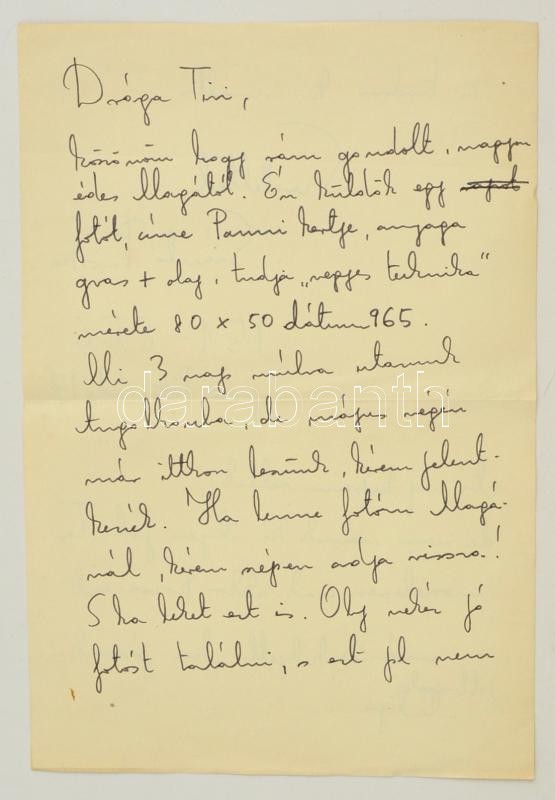 Drága Tivi,
köszönöm hogy rám gondolt, nagyon
édes Magától. Én küldök egy
fotót, címe Panni kertje, anyaga
gvas + olaj, tudja „vegyes technika"
mérete 80 x 50 dátum 965.
Mi 3 nap múlva utazunk
de május végén
már itthon leszünk, kérem jelent-
kezzék. Ha lenne fotóm Magá-
nál, kérem szépen adja vissza!
S ha lehet ezt is. Oly nehéz jó
fotóst találni, s ezt pl nem
darabanth